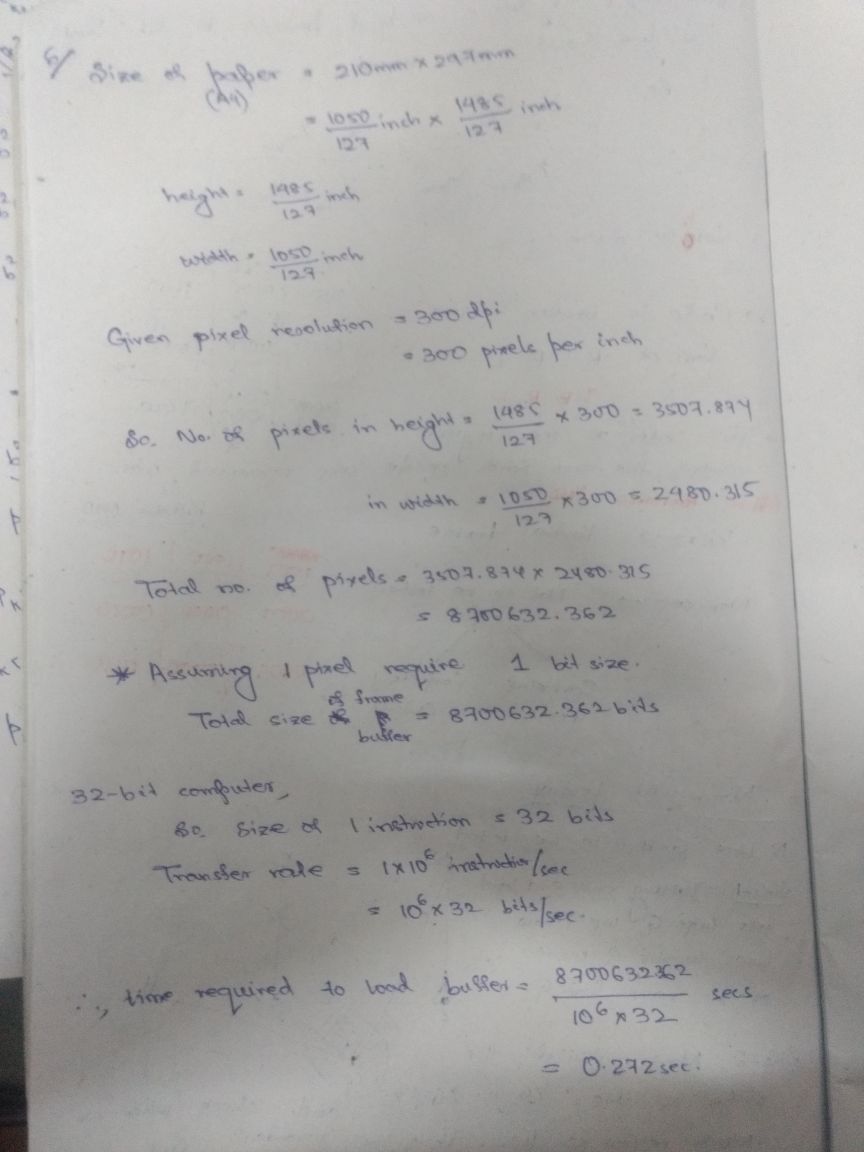 5/ Size of paper = 210mm x 297mm
(A4)
= 1050/127 inch x 1485/127 inch
height = 1485/127 inch
width = 1050/127 inch
Given pixel resolution = 300 dpi
= 300 pixels per inch
So, No. of pixels in height = 1485/127 x 300 = 3507.874
in width = 1050/127 x 300 = 2480.315
Total no. of pixels = 3507.874 x 2480.315
= 8700632.362
* Assuming 1 pixel require 1 bit size.
Total size of frame buffer = 8700632.362 bits
32-bit computer,
So, Size of 1 instruction = 32 bits
Transfer rate = 1x10⁶ instruction/sec
= 10⁶ x 32 bits/sec.
∴, time required to load buffer = 8700632.362/10⁶ x 32 secs
= 0.272 sec.